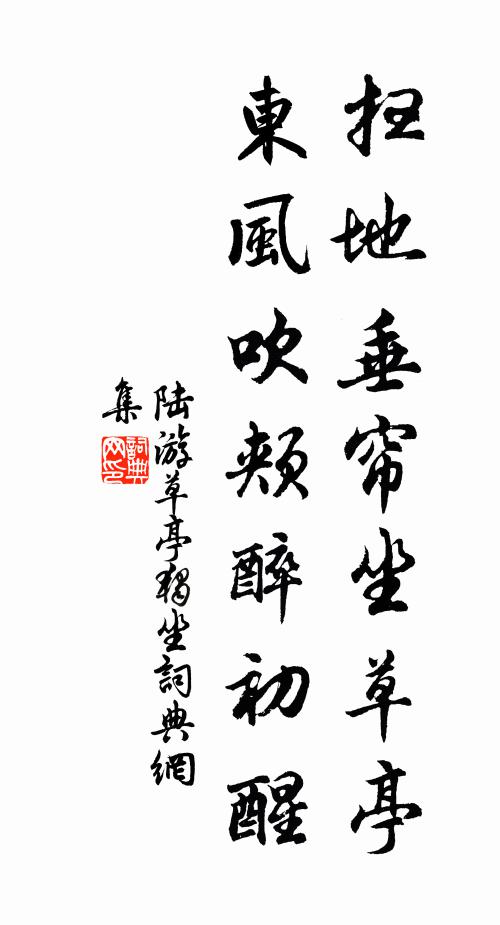 扫地垂帘坐草亭
東風吹頰醉初醒
陆游草亭獨坐詞典網
集
詞典網印